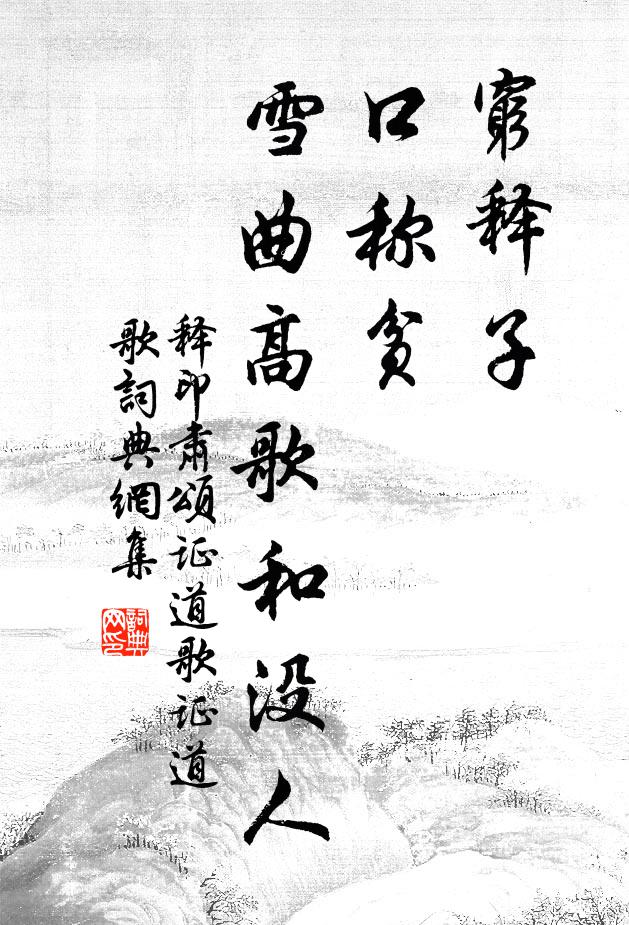 窮释子
口称貧
雪曲高歌和没人
释印肃頌证道歌证道
歌詞典網集
詞典
网印